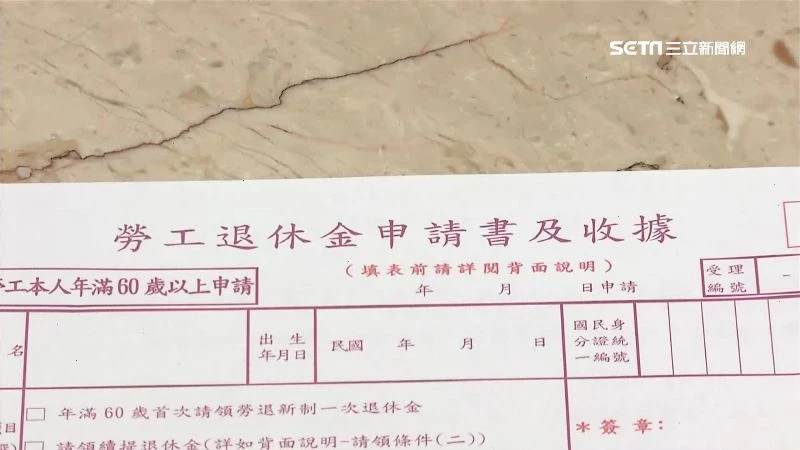 SETN三立新聞網
勞工退休金申請書及收據
(填表前請詳閱背面說明)
受理編號
勞工本人年滿60歲以上申請
年 月 日申請
名
出生年月日
民國 年 月 日
國民身分證統一編號
□ 年滿60歲首次請領勞退新制一次退休金
□ 請領續提退休金(詳如背面說明-請領條件(二))
項目
*簽章: